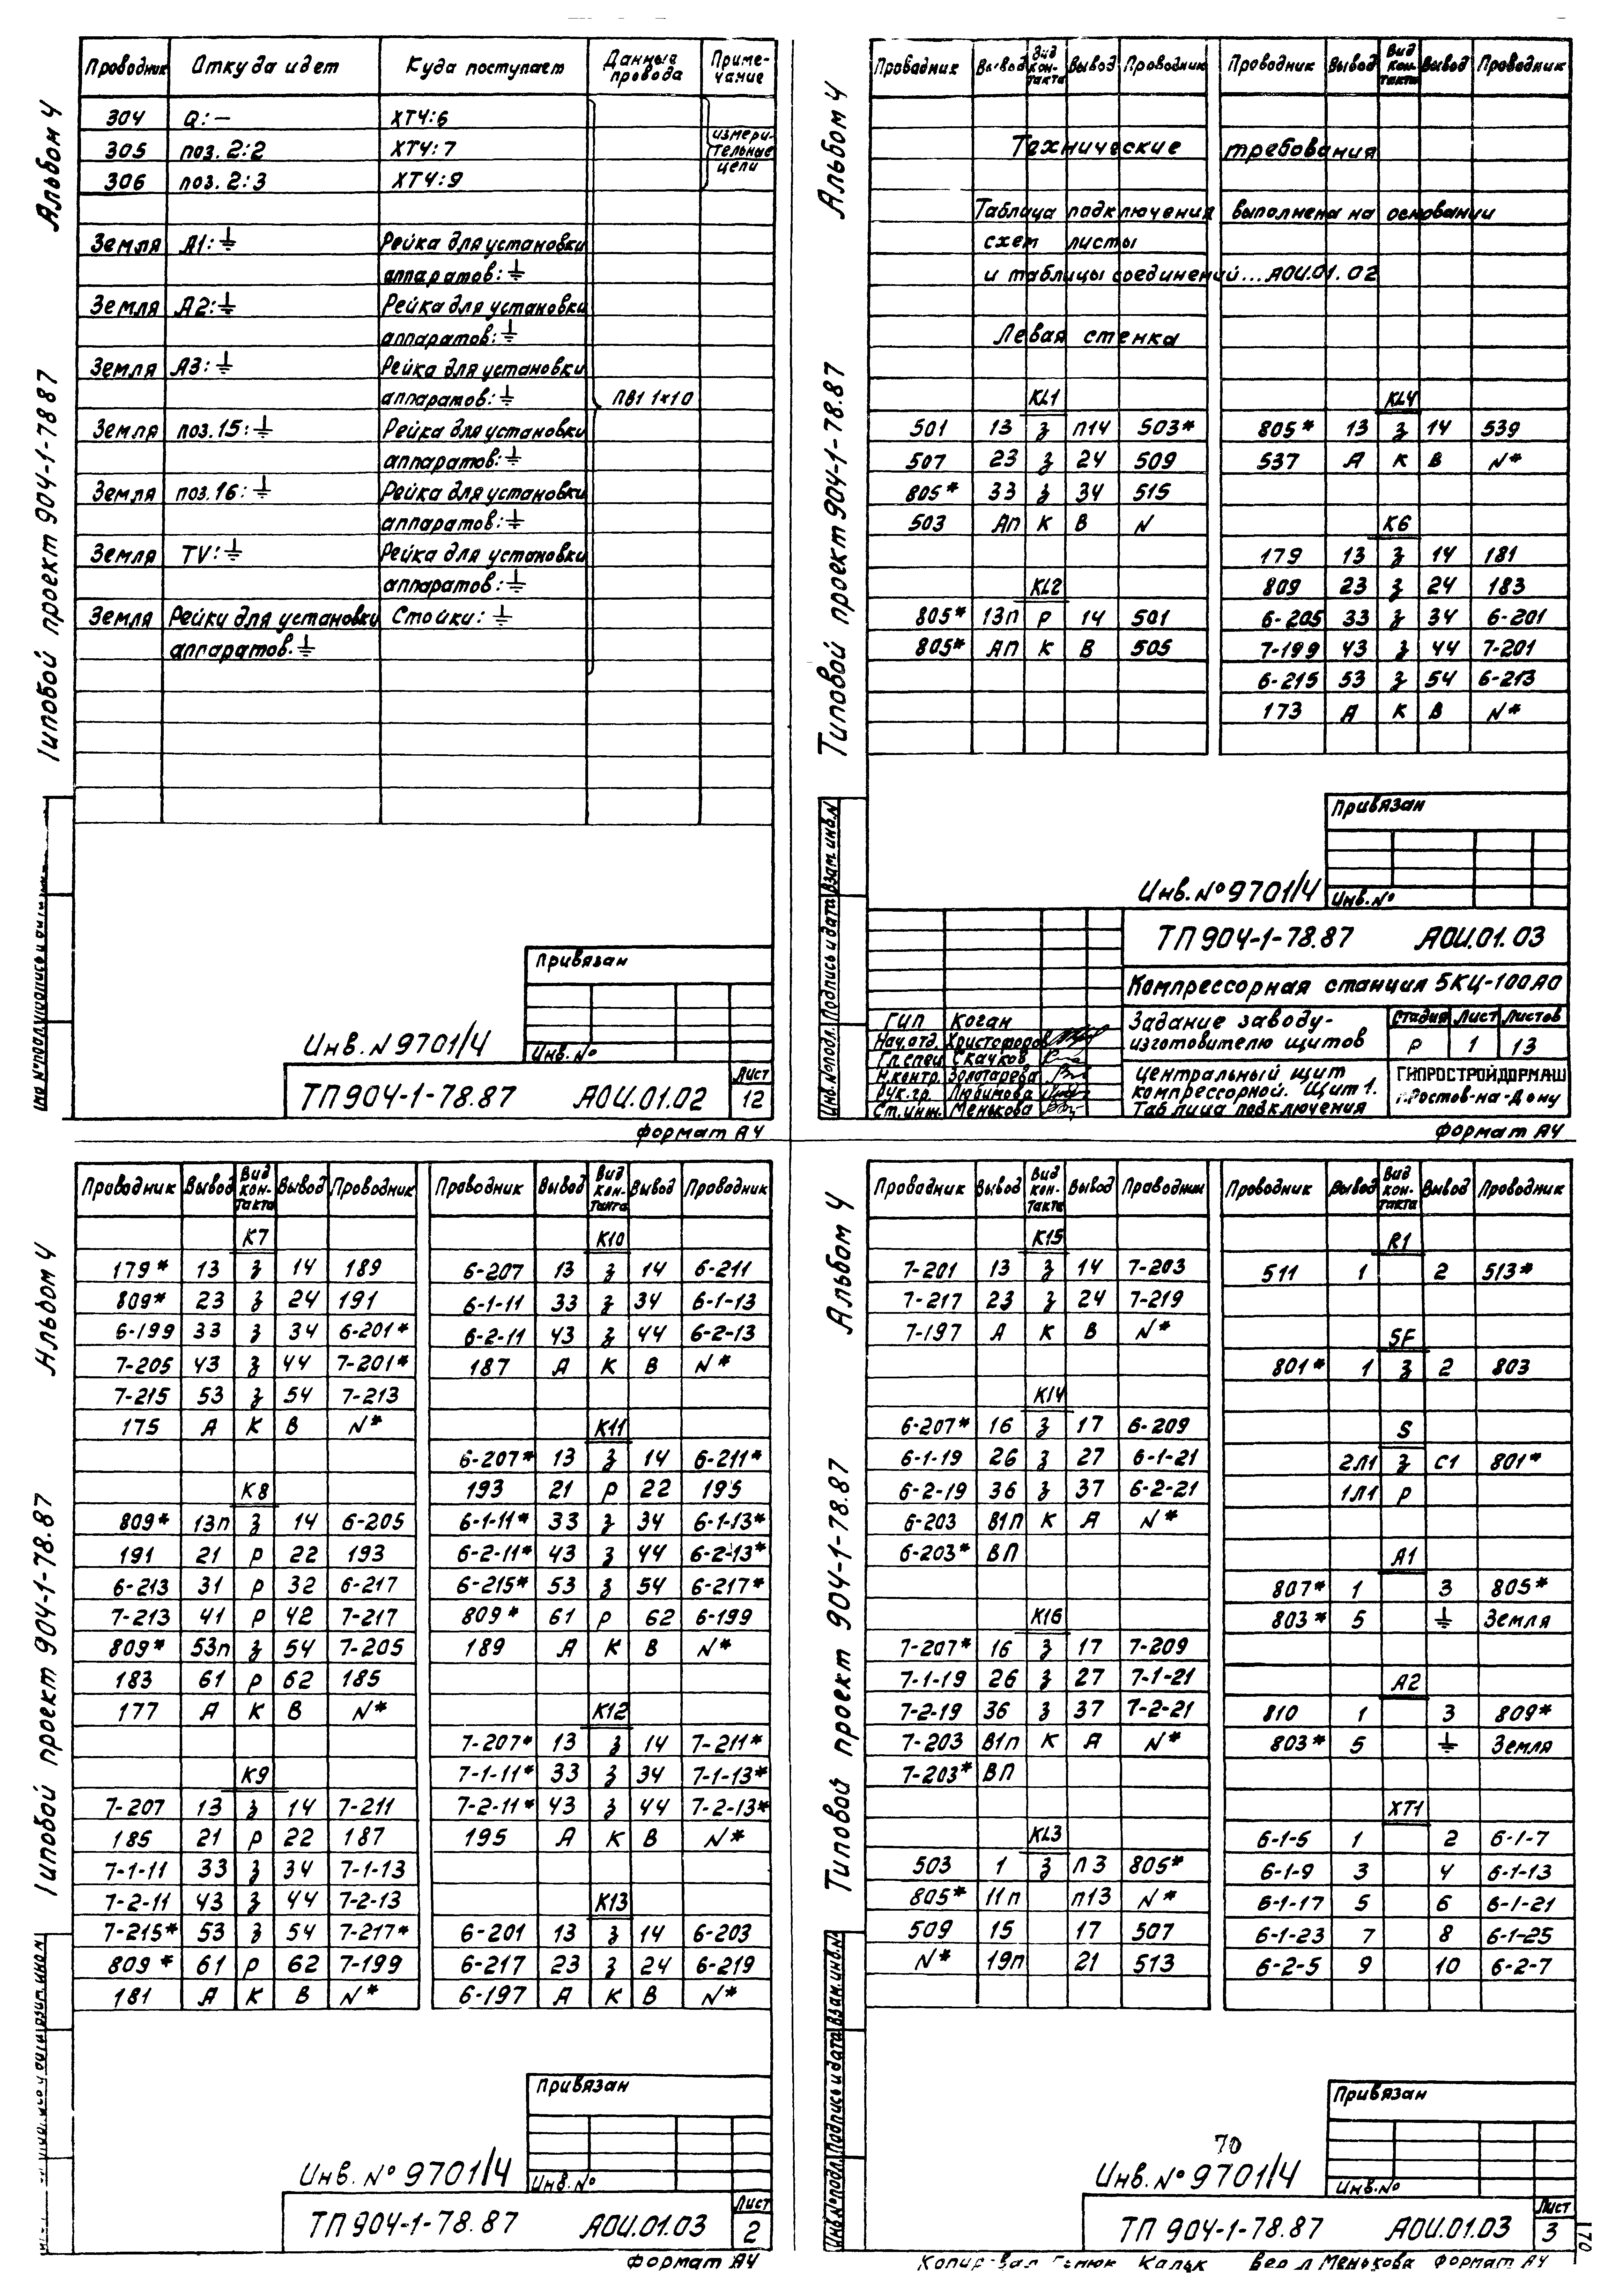 Альбом 4
Типовой проект 904-1-78.87
Проводник Откуда идет Куда поступает Данные провода Примечание
304 Q:— XT4:6
305 поз. 2:2 XT4:7
306 поз. 2:3 XT4:9
измерительные цепи
Земля A1:⏚ Рейка для установки
аппаратов:⏚
Земля A2:⏚ Рейка для установки
аппаратов:⏚
Земля A3:⏚ Рейка для установки
аппаратов:⏚ ПВ1 1×1,0
Земля поз.15:⏚ Рейка для установки
аппаратов:⏚
Земля поз.16:⏚ Рейка для установки
аппаратов:⏚
Земля TV:⏚ Рейка для установки
аппаратов:⏚
Земля Рейки для установки Стойки:⏚
аппаратов.⏚
Привязан
Инв. N 9701/4
Инв. №
ТП 904-1-78.87 АОИ.01.02
Лист
12
формат А4
Альбом 4
Типовой проект 904-1-78.87
Проводник Вывод Вид контакта Вывод Проводник Проводник Вывод Вид контакта Вывод Проводник
Технические требования
Таблица подключения выполнена на основании
схем листы
и таблицы соединений...АОИ.01.02
Левая стенка
KL1
501 13 з п14 503*
507 23 з 24 509
805* 33 з 34 515
503 Ап К В N
KL2
805* 13п Р 14 501
805* Ап К В 505
KL4
805* 13 з 14 539
537 А К В N*
K6
179 13 з 14 181
809 23 з 24 183
6-205 33 з 34 6-201
7-199 43 з 44 7-201
6-215 53 з 54 6-213
173 А К В N*
Инв. № подл. Подпись и дата Взам. инв. N
Привязан
Инв. № 9701/4
Инв. №
ТП 904-1-78.87 АОИ.01.03
Компрессорная станция 5КЦ-100А0
ГИП Коган
Нач.отд. Христофоров
Гл.спец Скачков
Н.контр. Золотарева
Рук.гр. Любимова
Ст.инж. Менькова
Задание заводу-
изготовителю щитов
Стадия Лист Листов
Р 1 13
Центральный щит
компрессорной. Щит 1.
Таблица подключения
ГИПРОСТРОЙДОРМАШ
г.Ростов-на-Дону
формат А4
Альбом 4
Типовой проект 904-1-78.87
Проводник Вывод Вид контакта Вывод Проводник Проводник Вывод Вид контакта Вывод Проводник
K7
179* 13 з 14 189
809* 23 з 24 191
6-199 33 з 34 6-201*
7-205 43 з 44 7-201*
7-215 53 з 54 7-213
175 А К В N*
K8
809* 13п з 14 6-205
191 21 Р 22 193
6-213 31 Р 32 6-217
7-213 41 Р 42 7-217
809* 53п з 54 7-205
183 61 Р 62 185
177 А К В N*
K9
7-207 13 з 14 7-211
185 21 Р 22 187
7-1-11 33 з 34 7-1-13
7-2-11 43 з 44 7-2-13
7-215* 53 з 54 7-217*
809* 61 Р 62 7-199
181 А К В N*
K10
6-207 13 з 14 6-211
6-1-11 33 з 34 6-1-13
6-2-11 43 з 44 6-2-13
187 А К В N*
K11
6-207* 13 з 14 6-211*
193 21 Р 22 195
6-1-11* 33 з 34 6-1-13*
6-2-11* 43 з 44 6-2-13*
6-215* 53 з 54 6-217*
809* 61 Р 62 6-199
189 А К В N*
K12
7-207* 13 з 14 7-211*
7-1-11* 33 з 34 7-1-13*
7-2-11* 43 з 44 7-2-13*
195 А К В N*
K13
6-201 13 з 14 6-203
6-217 23 з 24 6-219
6-197 А К В N*
Привязан
Инв. № 9701/4
Инв. №
ТП 904-1-78.87 АОИ.01.03
Лист
2
формат А4
Альбом 4
Типовой проект 904-1-78.87
Проводник Вывод Вид контакта Вывод Проводник Проводник Вывод Вид контакта Вывод Проводник
K15
7-201 13 з 14 7-203
7-217 23 з 24 7-219
7-197 А К В N*
K14
6-207* 16 з 17 6-209
6-1-19 26 з 27 6-1-21
6-2-19 36 з 37 6-2-21
6-203 В1п К А N*
6-203* ВП
K16
7-207* 16 з 17 7-209
7-1-19 26 з 27 7-1-21
7-2-19 36 з 37 7-2-21
7-203 В1п К А N*
7-203* ВП
KL3
503 1 з п3 805*
805* 11п п13 N*
509 15 17 507
N* 19п 21 513
R1
511 1 2 513*
SF
801* 1 з 2 803
S
2Л1 з С1 801*
1Л1 Р
A1
807* 1 3 805*
803* 5 ⏚ Земля
A2
810 1 3 809*
803* 5 ⏚ Земля
XT1
6-1-5 1 2 6-1-7
6-1-9 3 4 6-1-13
6-1-17 5 6 6-1-21
6-1-23 7 8 6-1-25
6-2-5 9 10 6-2-7
Инв. № подл. Подпись и дата Взам. инв. №
Привязан
70
Инв. № 9701/4
Инв. №
ТП 904-1-78.87 АОИ.01.03
Лист
3
Менькова формат А4
170